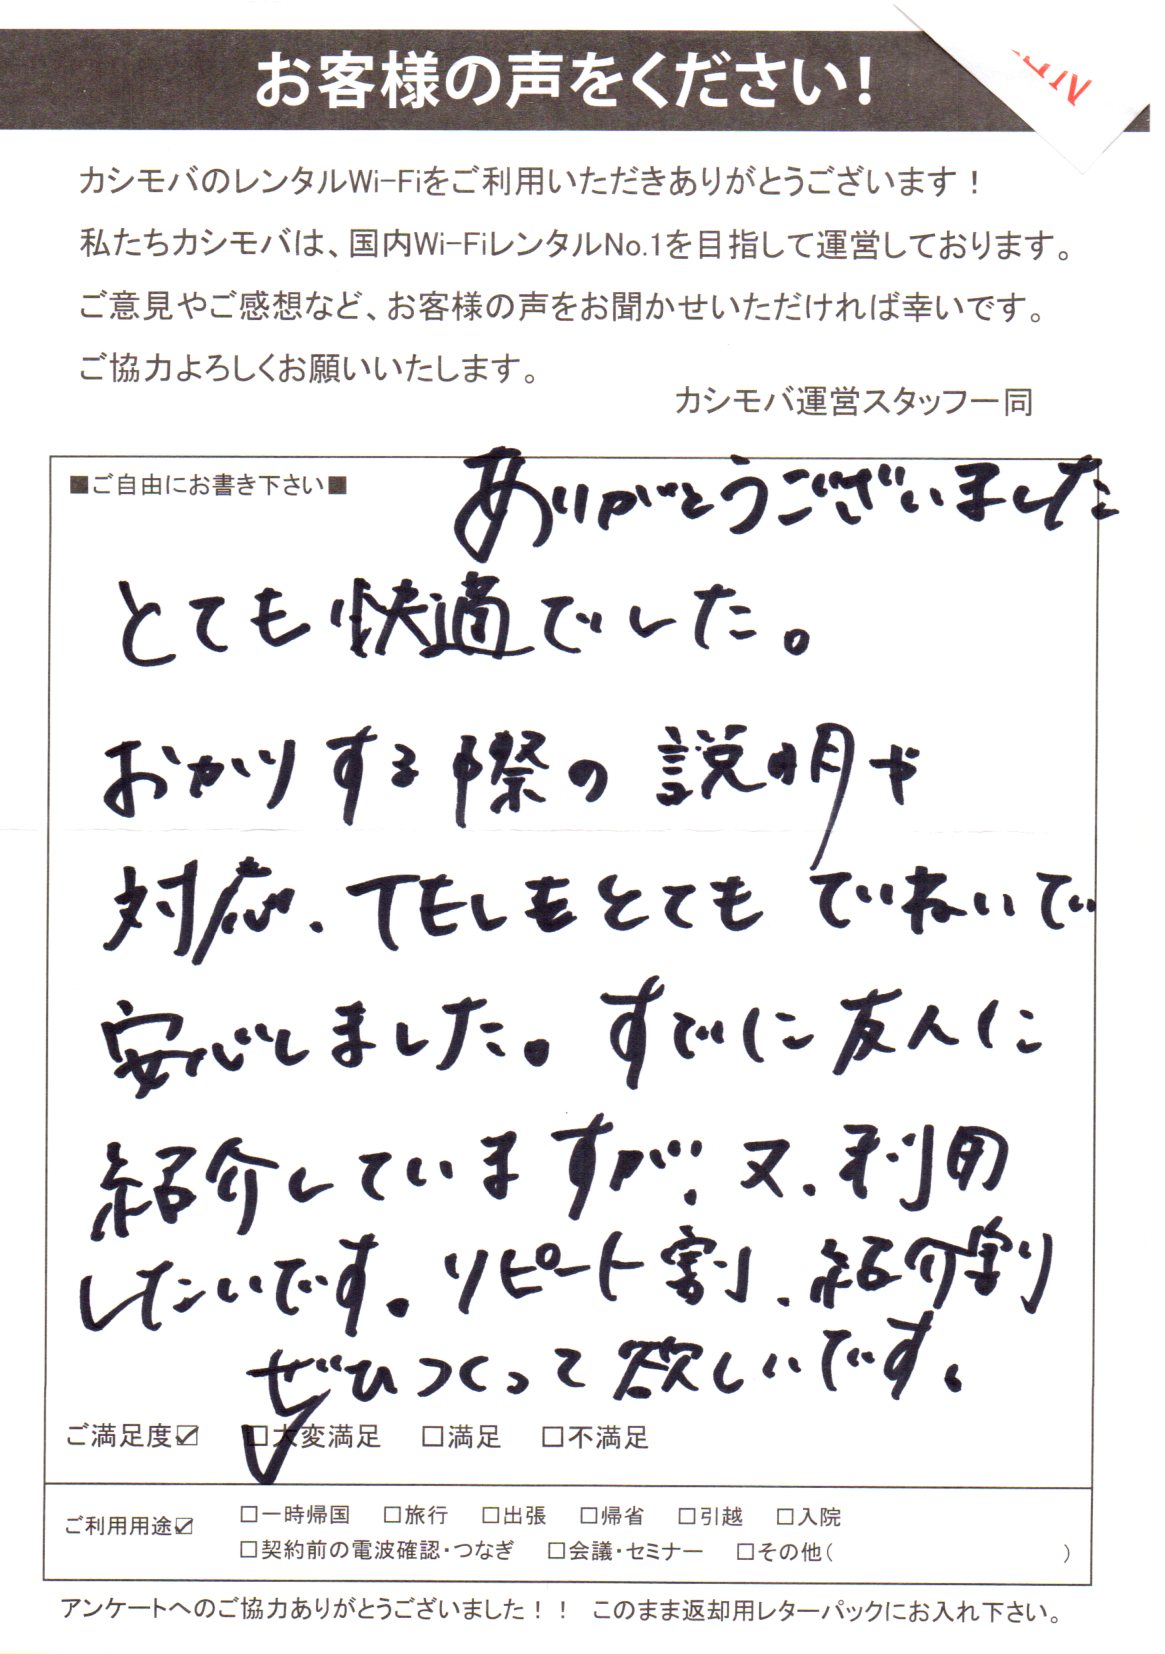 お客様の声をください!
カシモバのレンタルWi-Fiをご利用いただきありがとうございます！
私たちカシモバは、国内Wi-FiレンタルNo.1を目指して運営しております。
ご意見やご感想など、お客様の声をお聞かせいただければ幸いです。
ご協力よろしくお願いいたします。
カシモバ運営スタッフ一同
■ご自由にお書き下さい■
ありがとうございました
とても快適でした。
おかりする際の説明や
対応、TELもとても ていねいで
安心しました。すでに友人に
紹介していますが、又、利用
したいです。リピート割、紹介割り
ぜひつくって欲しいです。
ご満足度☑ □大変満足 □満足 □不満足
ご利用用途☑ □一時帰国 □旅行 □出張 □帰省 □引越 □入院
□契約前の電波確認・つなぎ □会議・セミナー □その他( )
アンケートへのご協力ありがとうございました！！ このまま返却用レターパックにお入れ下さい。